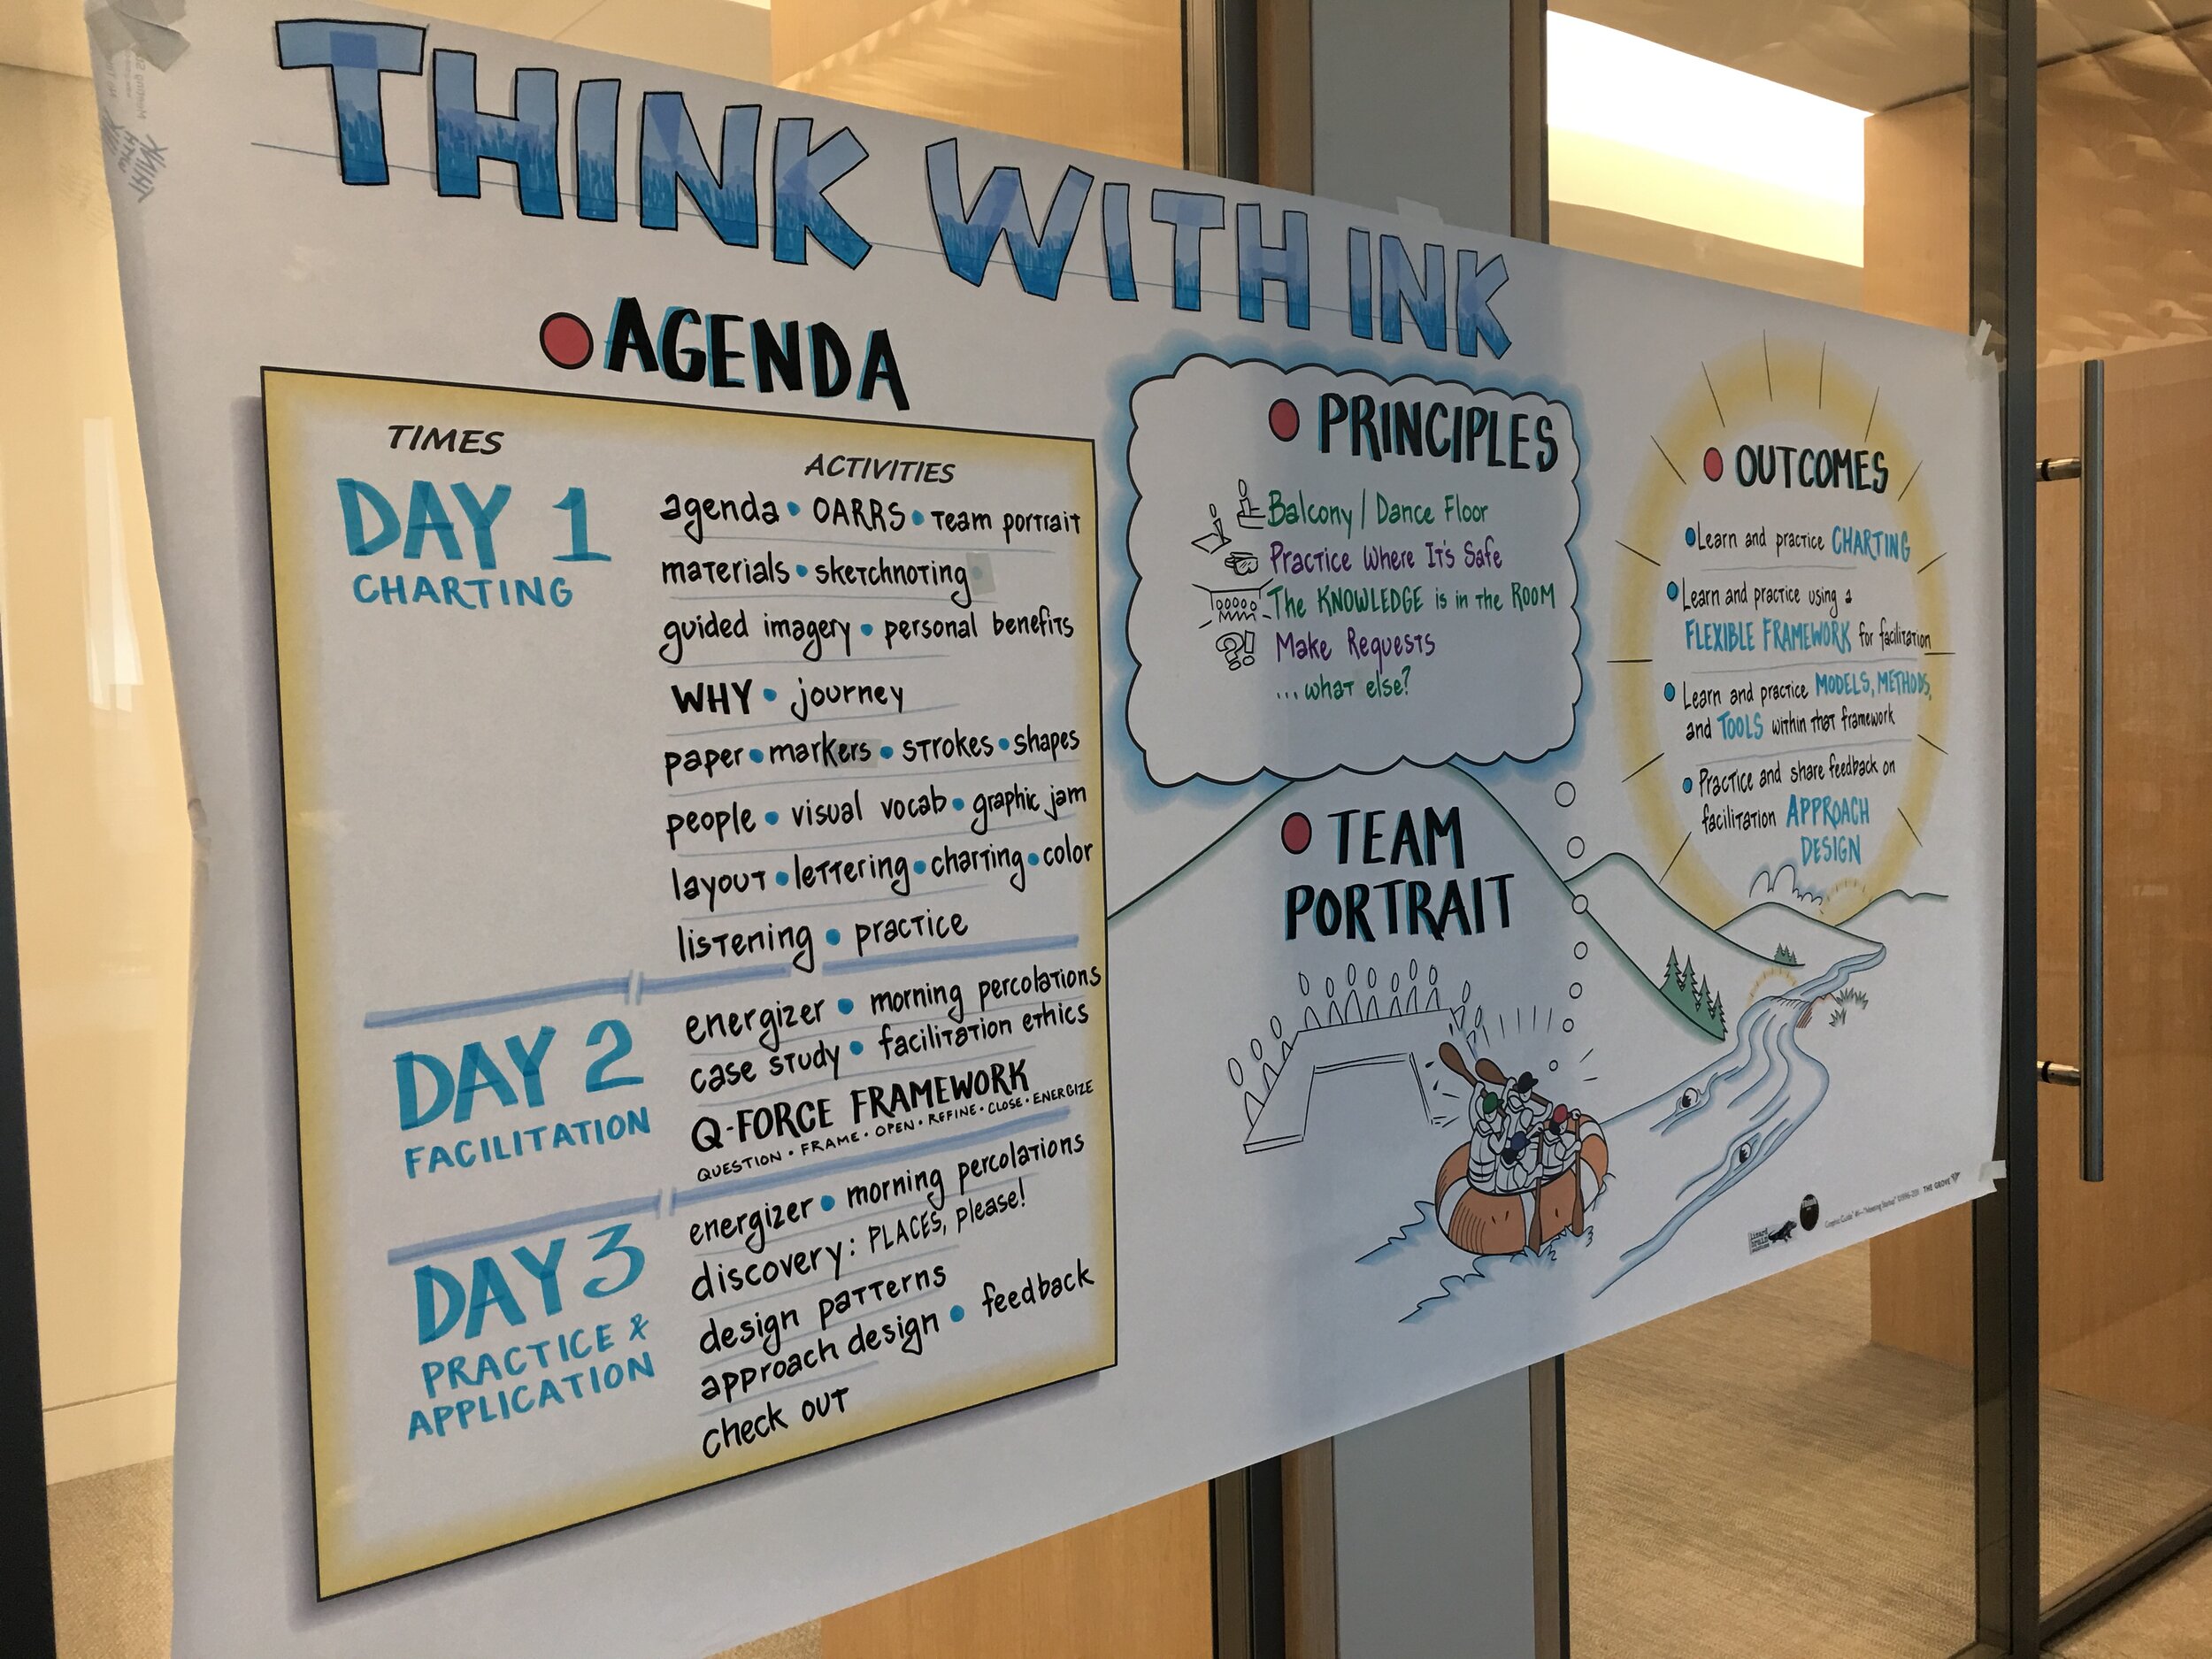 THINK WITH INK
AGENDA
TIMES
ACTIVITIES
DAY 1
CHARTING
agenda • OARRS • Team portrait
materials • sketchnoting
guided imagery • personal benefits
WHY • journey
paper • markers • strokes • shapes
people • visual vocab • graphic jam
layout • lettering • charting • color
listening • practice
DAY 2
FACILITATION
energizer • morning percolations
case study • facilitation ethics
Q-FORCE FRAMEWORK
QUESTION • FRAME • OPEN • REFINE • CLOSE • ENERGIZE
DAY 3
PRACTICE &
APPLICATION
energizer • morning percolations
discovery: PLACES, please!
design patterns
approach design • feedback
check out
PRINCIPLES
Balcony / Dance Floor
Practice Where It's Safe
The KNOWLEDGE is in the ROOM
?!
Make Requests
...what else?
TEAM
PORTRAIT
OUTCOMES
Learn and practice CHARTING
Learn and practice using a
FLEXIBLE FRAMEWORK for facilitation
Learn and practice MODELS, METHODS,
and TOOLS within that framework
Practice and share feedback on
facilitation APPROACH
DESIGN
THE GROVE